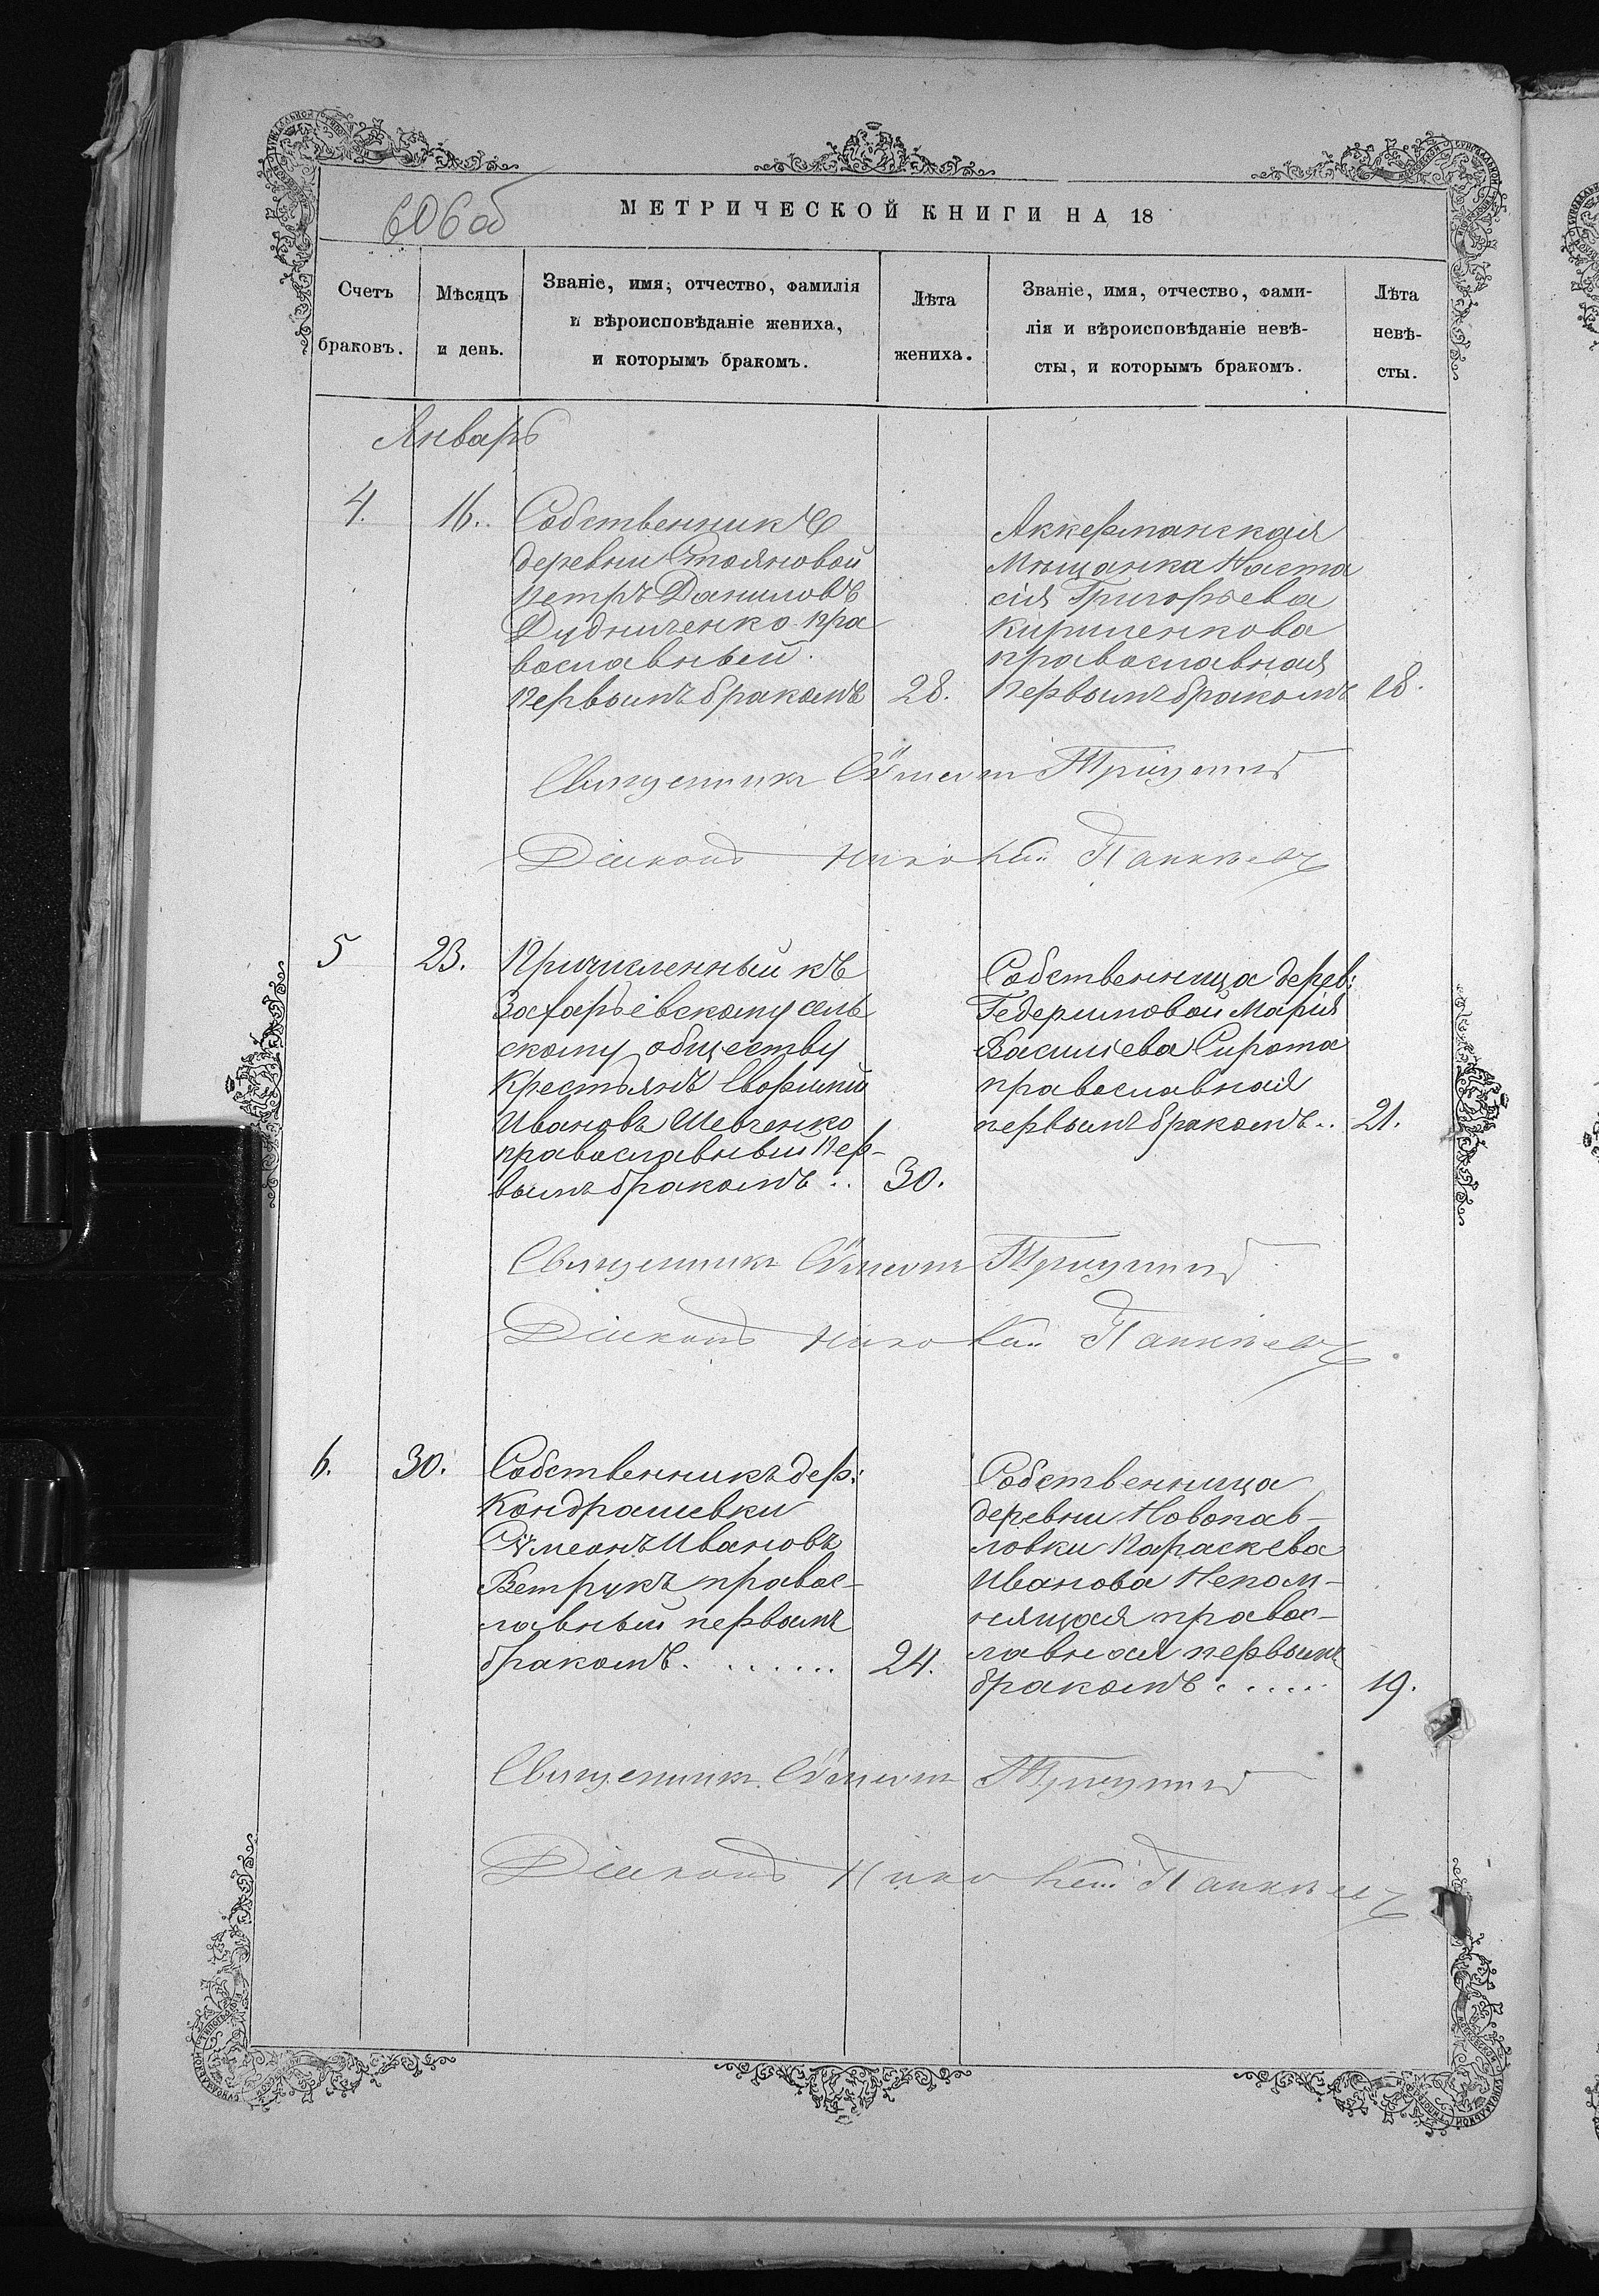 606 об
МЕТРИЧЕСКОЙ КНИГИ НА 18
Счетъ браковъ.
Мѣсяцъ и день.
Званіе, имя, отчество, фамилія
и вѣроисповѣданіе жениха,
и которымъ бракомъ.
Лѣта жениха.
Званіе, имя, отчество, фами-
лія и вѣроисповѣданіе невѣ-
сты, и которымъ бракомъ.
Лѣта невѣ-
сты.
Январь
4.
16.
Собственникъ
деревни Стояновой
Петръ Даниловъ
Дудниченко пра
вославный.
Первымъ бракомъ
28.
Аккерманская
Мѣщанка Наста
сія Григорьева
Кириленкова
православная
Первымъ бракомъ
18.
Священникъ Сѵмеонъ
Діаконъ Николай
5
23.
Причисленный къ
Захарьевскому сель
скому обществу
Крестьянъ
Ивановъ Шевченко
православный пер-
вымъ бракомъ..
30.
Собственница дерев:
Гедеримовой Марія
Василіева Сирота
православная
первымъ бракомъ..
21.
Священникъ Сѵмеонъ
Діаконъ Николай
6.
30.
Собственникъ дер:
Кондрашевки
Сѵмеонъ Ивановъ
Ветрукъ правос-
лавный первымъ
бракомъ.......
24.
Собственница
деревни Новопав-
ловки Параскева
Иванова Непом-
нящая правос-
лавная первымъ
бракомъ......
19.
Священникъ Сѵмеонъ
Діаконъ Николай